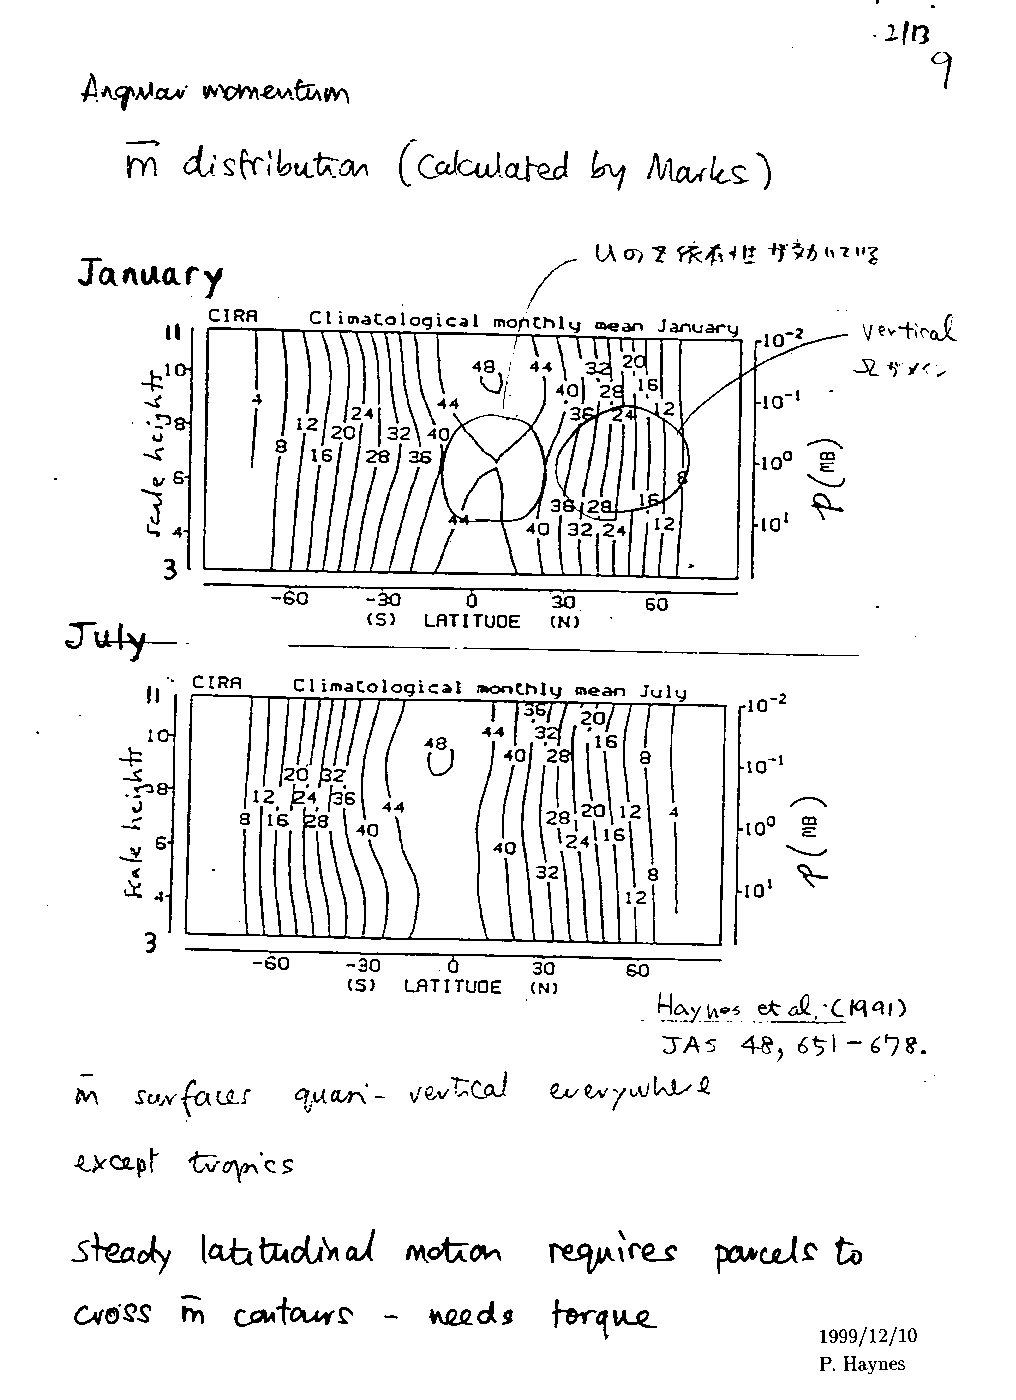 2/13
9
Angular momentum
m̄ distribution (Calculated by Marks)
Uのz依存性が効いている
January
CIRA Climatological monthly mean January
vertical
11 10 8 6 4 3
scale heights
10⁻² 10⁻¹ 10⁰ 10¹
p (MB)
48 44 32 20
40 28 16
4 44 36 24 12
12 24
8 20 32 40
16 28 36 8
38 28 16
44 40 32 24 12
-60 -30 0 30 60
(S) LATITUDE (N)
July
CIRA Climatological monthly mean July
11 10 8 6 4 3
scale heights
10⁻² 10⁻¹ 10⁰ 10¹
p (MB)
36 20
44 32 16
48 40 28 8
20 32
12 24 36 44
8 16 28 40
28 20 12 4
40 24 16
32 8
12
-60 -30 0 30 60
(S) LATITUDE (N)
Haynes et al. (1991)
JAS 48, 651-678.
m̄ surfaces quasi-vertical everywhere
except tropics
steady latitudinal motion requires parcels to
cross m̄ contours - needs torque
1999/12/10
P. Haynes